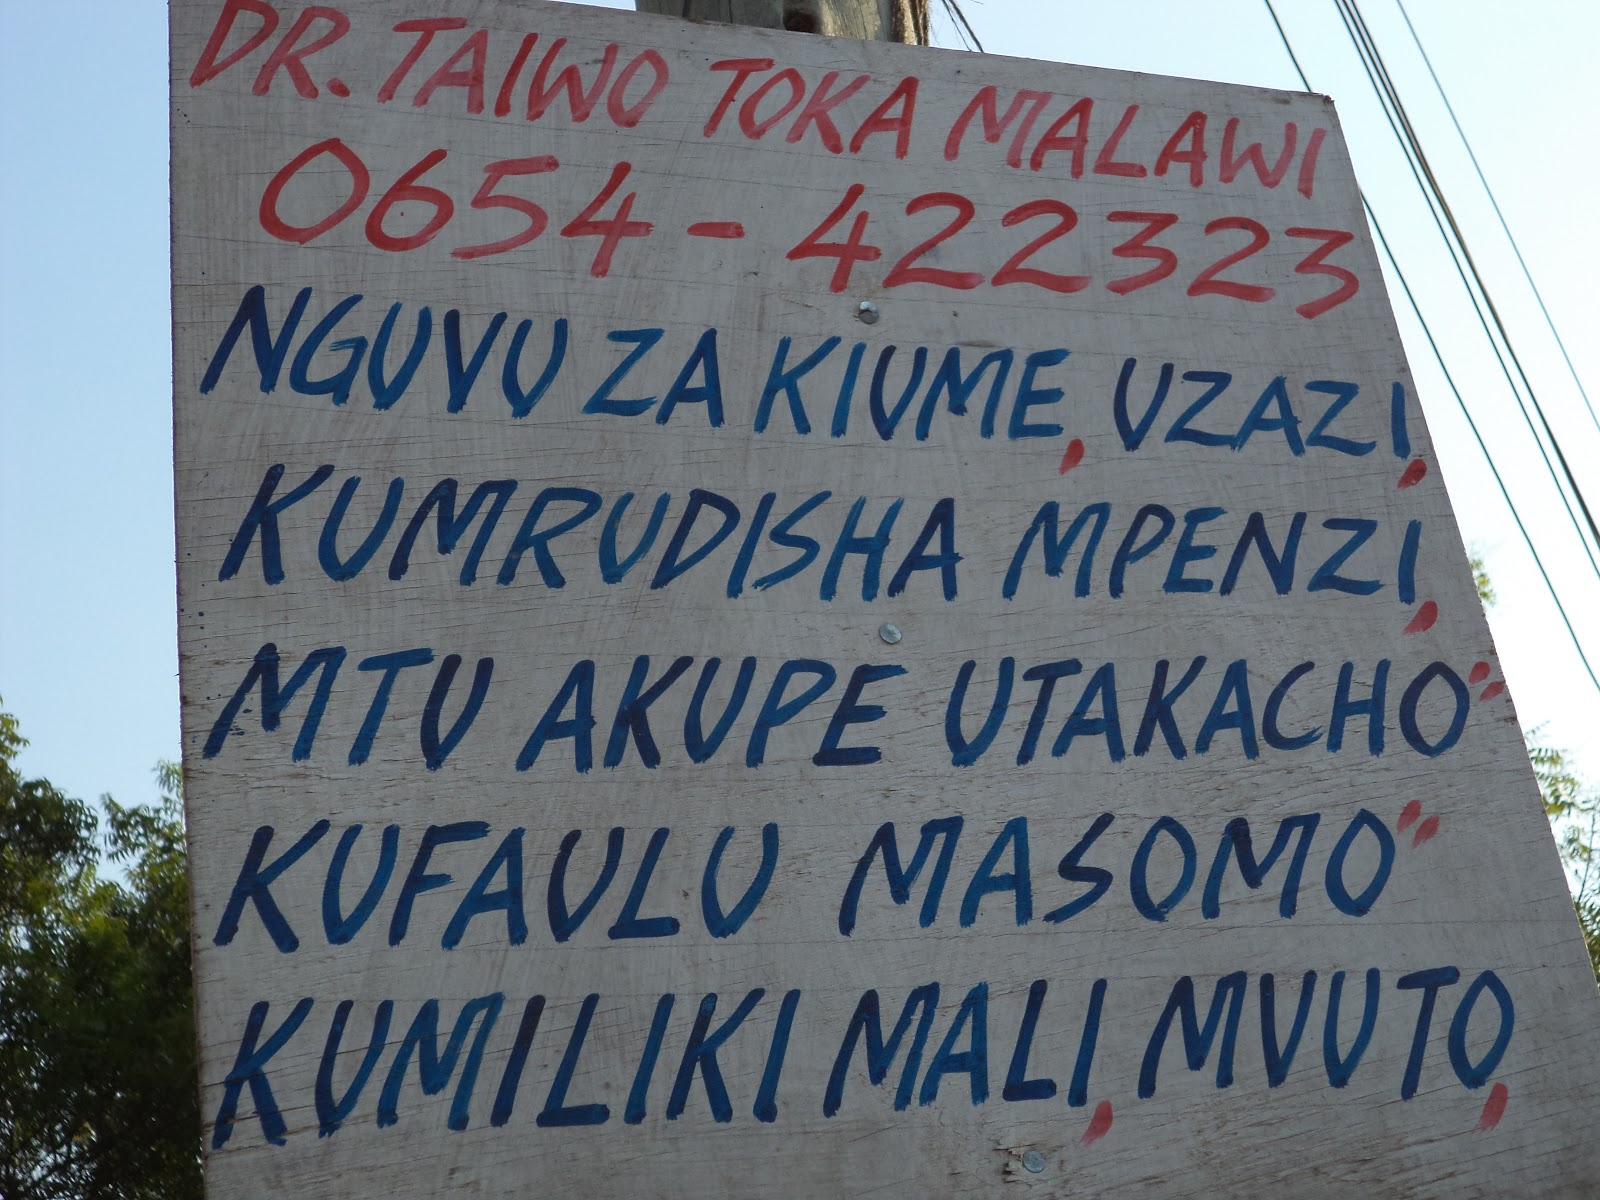 DR. TAIWO TOKA MALAWI
0654-422323
NGUVU ZA KIUME, UZAZI,
KUMRUDISHA MPENZI,
MTU AKUPE UTAKACHO"
KUFAULU MASOMO"
KUMILIKI MALI, MVUTO,